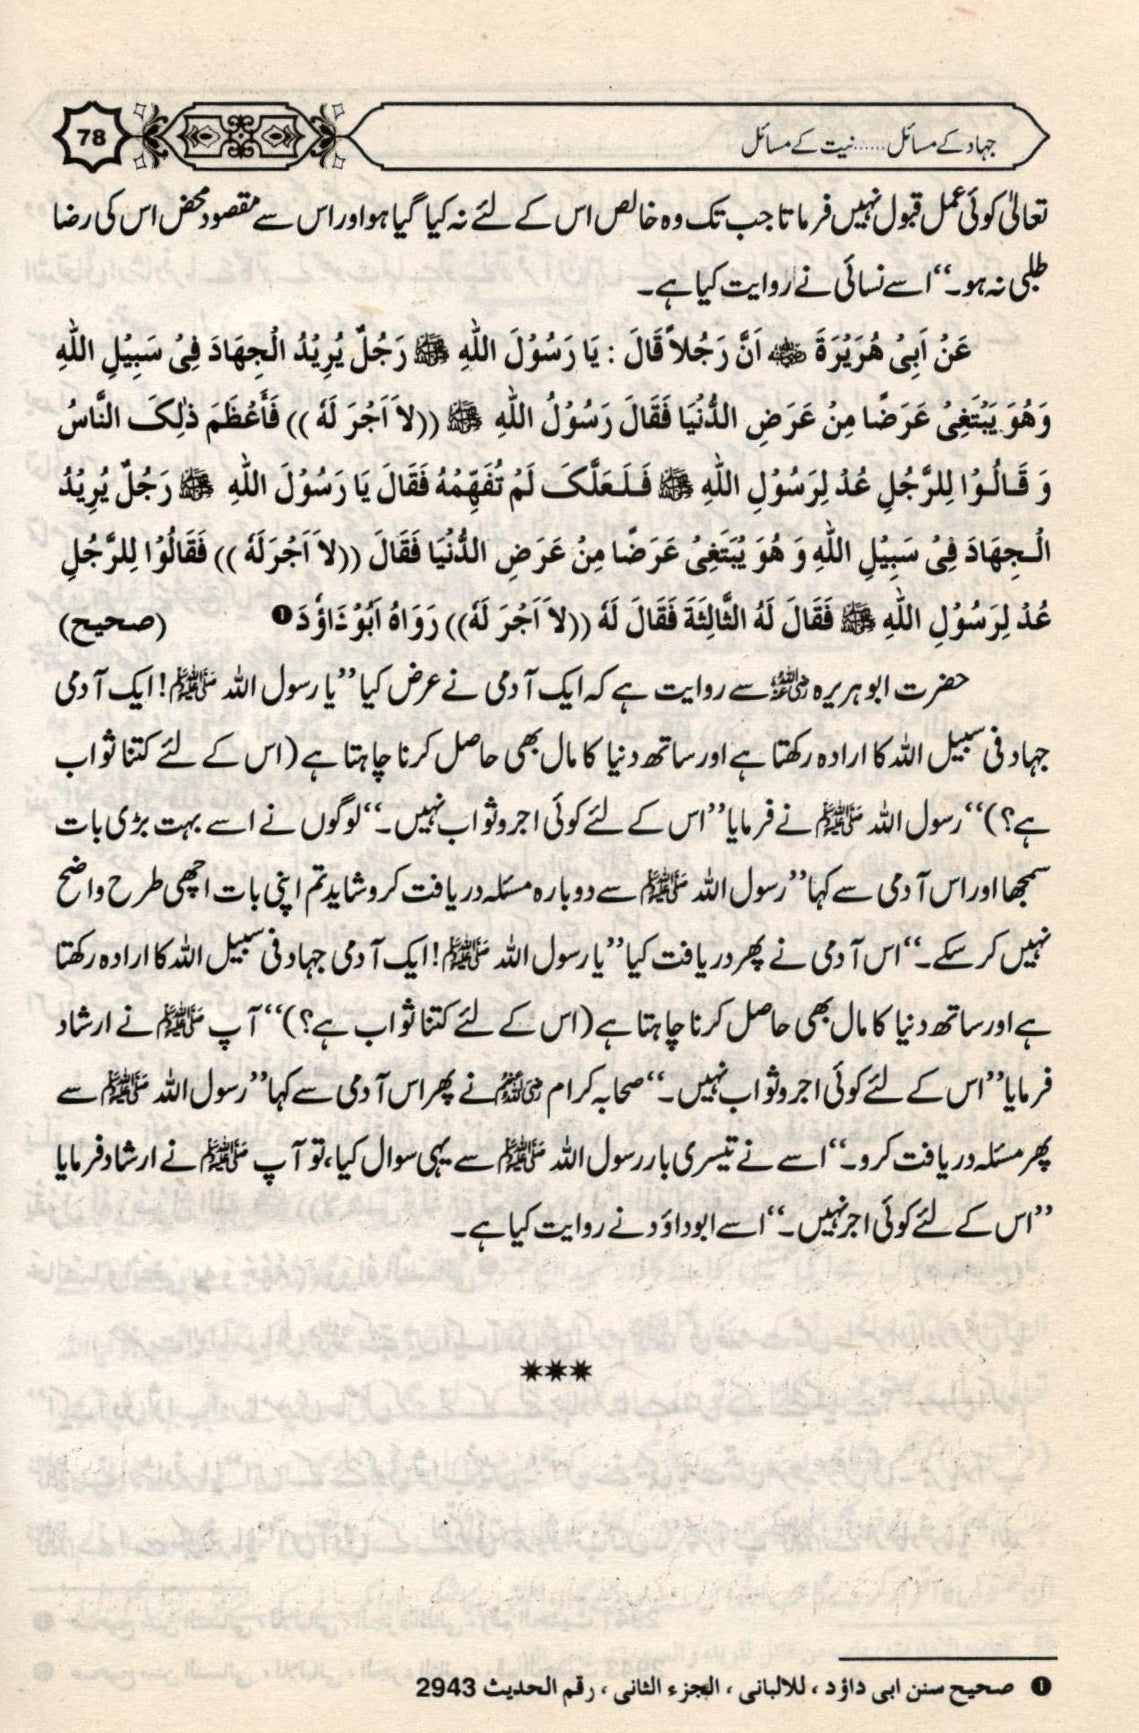 جہاد کے مسائل......نیت کے مسائل
78
تعالیٰ کوئی عمل قبول نہیں فرماتا جب تک وہ خالص اس کے لئے نہ کیا گیا ہو اور اس سے مقصود محض اس کی رضا
طلبی نہ ہو۔‘‘ اسے نسائی نے روایت کیا ہے۔
عَنْ اَبِیْ هُرَیْرَةَ ؓ اَنَّ رَجُلاً قَالَ : یَا رَسُوْلَ اللّٰهِ ﷺ رَجُلٌ یُرِیْدُ الْجِهَادَ فِیْ سَبِیْلِ اللّٰهِ
وَهُوَ یَبْتَغِیْ عَرَضًا مِنْ عَرَضِ الدُّنْیَا فَقَالَ رَسُوْلُ اللّٰهِ ﷺ ((لاَ اَجْرَ لَهٗ )) فَأَعْظَمَ ذٰلِکَ النَّاسُ
وَ قَالُوْا لِلرَّجُلِ عُدْ لِرَسُوْلِ اللّٰهِ ﷺ فَلَعَلَّکَ لَمْ تُفَهِّمْهُ فَقَالَ یَا رَسُوْلَ اللّٰهِ ﷺ رَجُلٌ یُرِیْدُ
الْجِهَادَ فِیْ سَبِیْلِ اللّٰهِ وَ هُوَ یَبْتَغِیْ عَرَضًا مِنْ عَرَضِ الدُّنْیَا فَقَالَ ((لاَ اَجْرَ لَهٗ )) فَقَالُوْا لِلرَّجُلِ
عُدْ لِرَسُوْلِ اللّٰهِ ﷺ فَقَالَ لَهُ الثَّالِثَةَ فَقَالَ لَهٗ ((لاَ اَجْرَ لَهٗ)) رَوَاهُ اَبُوْدَاؤٗدَ❶ (صحیح)
حضرت ابو ہریرہ ؓ سے روایت ہے کہ ایک آدمی نے عرض کیا ’’یا رسول اللہ ﷺ! ایک آدمی
جہاد فی سبیل اللہ کا ارادہ رکھتا ہے اور ساتھ دنیا کا مال بھی حاصل کرنا چاہتا ہے (اس کے لئے کتنا ثواب
ہے؟)‘‘ رسول اللہ ﷺ نے فرمایا ’’اس کے لئے کوئی اجر و ثواب نہیں۔‘‘ لوگوں نے اسے بہت بڑی بات
سمجھا اور اس آدمی سے کہا ’’رسول اللہ ﷺ سے دوبارہ مسئلہ دریافت کرو شاید تم اپنی بات اچھی طرح واضح
نہیں کر سکے۔‘‘ اس آدمی نے پھر دریافت کیا ’’یا رسول اللہ ﷺ! ایک آدمی جہاد فی سبیل اللہ کا ارادہ رکھتا
ہے اور ساتھ دنیا کا مال بھی حاصل کرنا چاہتا ہے (اس کے لئے کتنا ثواب ہے؟)‘‘ آپ ﷺ نے ارشاد
فرمایا ’’اس کے لئے کوئی اجر و ثواب نہیں۔‘‘ صحابہ کرام ؓ نے پھر اس آدمی سے کہا ’’رسول اللہ ﷺ سے
پھر مسئلہ دریافت کرو۔‘‘ اسے نے تیسری بار رسول اللہ ﷺ سے یہی سوال کیا، تو آپ ﷺ نے ارشاد فرمایا
’’اس کے لئے کوئی اجر نہیں۔‘‘ اسے ابوداؤد نے روایت کیا ہے۔
✷✷✷
❶ صحیح سنن ابی داؤد ، للالبانی ، الجزء الثانی ، رقم الحدیث 2943